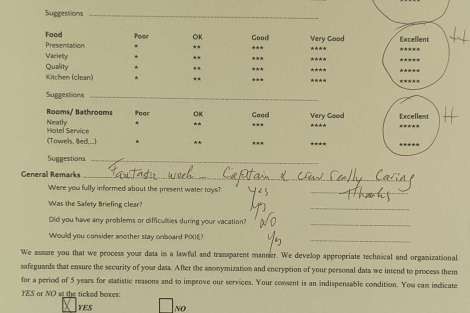 Suggestions
Food Poor OK Good Very Good Excellent
Presentation * ** *** **** *****
Variety * ** *** **** *****
Quality * ** *** **** *****
Kitchen (clean) * ** *** **** *****
Suggestions
Rooms/ Bathrooms Poor OK Good Very Good Excellent
Neatly * ** *** **** *****
Hotel Service
(Towels, Bed,..) * ** *** **** *****
Suggestions
General Remarks Fantastic week - Captain & crew really caring
Thanks
Were you fully informed about the present water toys? Yes
Was the Safety Briefing clear? Yes
Did you have any problems or difficulties during your vacation? NO
Would you consider another stay onboard PIXIE? Yes
We assure you that we process your data in a lawful and transparent manner. We develop appropriate technical and organizational
safeguards that ensure the security of your data. After the anonymization and encryption of your personal data we intend to process them
for a period of 5 years for statistic reasons and to improve our services. Your consent is an indispensable condition. You can indicate
YES or NO at the ticked boxes:
X YES NO